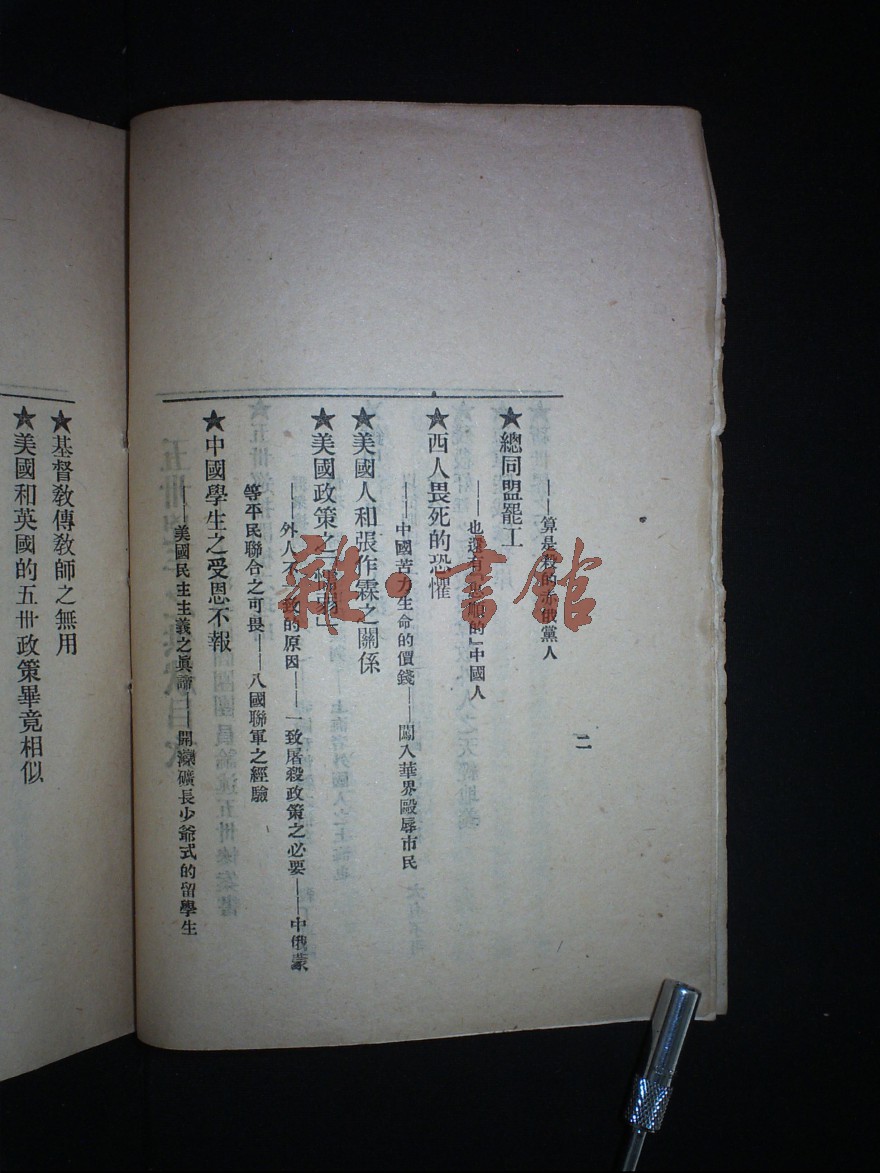 二
——算是殺的赤俄黨人
★總同盟罷工
——也還有「忠順的」中國人
★西人畏死的恐懼
——中國苦力生命的價錢——闖入華界毆辱市民
★美國人和張作霖之關係
★美國政策之「懦弱」
——外人不一致的原因——一致屠殺政策之必要——中俄蒙
等平民聯合之可畏——八國聯軍之經驗
★中國學生之受恩不報
——美國民主主義之眞諦——開灤礦長少爺式的留學生
★基督敎傳敎師之無用
★美國和英國的五卅政策畢竟相似
雜·書館